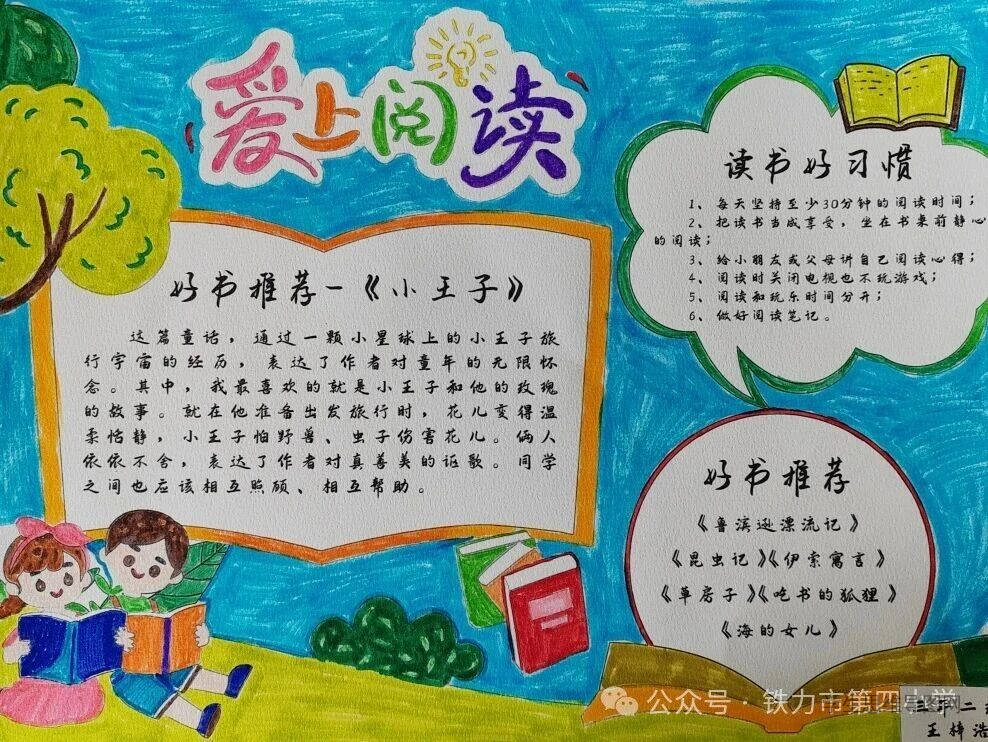 爱上阅读
好书推荐-《小王子》
这篇童话，通过一颗小星球上的小王子旅
行宇宙的经历，表达了作者对童年的无限怀
念。其中，我最喜欢的就是小王子和他的玫瑰
的故事。就在他准备出发旅行时，花儿变得温
柔恬静，小王子怕野兽、虫子伤害花儿。俩人
依依不舍，表达了作者对真善美的讴歌。同学
之间也应该相互照顾、相互帮助。
读书好习惯
1、每天坚持至少30分钟的阅读时间；
2、把读书当成享受，坐在书桌前静心
的阅读；
3、给小朋友或父母讲自己阅读心得；
4、阅读时关闭电视也不玩游戏；
5、阅读和玩乐时间分开；
6、做好阅读笔记。
好书推荐
《鲁滨逊漂流记》
《昆虫记》《伊索寓言》
《草房子》《吃书的狐狸》
《海的女儿》
公众号·铁力市第四小学
二
王梓浩